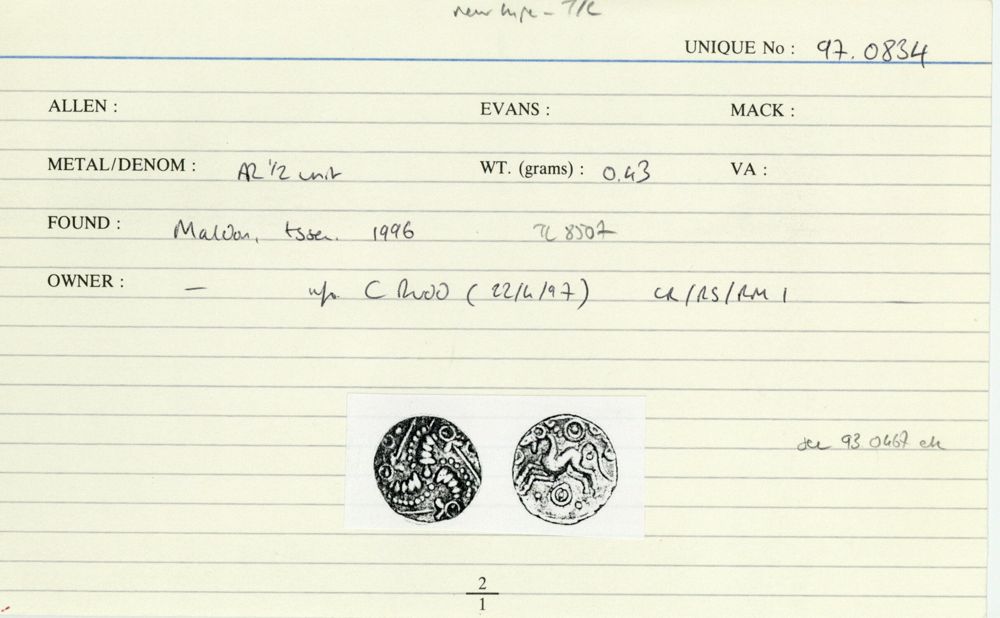 new type - T/C
UNIQUE No : 97.0834
ALLEN : EVANS : MACK :
METAL/DENOM : AR 1/2 unit WT. (grams) : 0.43 VA :
FOUND : Maldon, Essex. 1996 TL 8507
OWNER : — C Rudd (22/4/97) CR/RS/RM 1
see 93.0467 etc
2
1